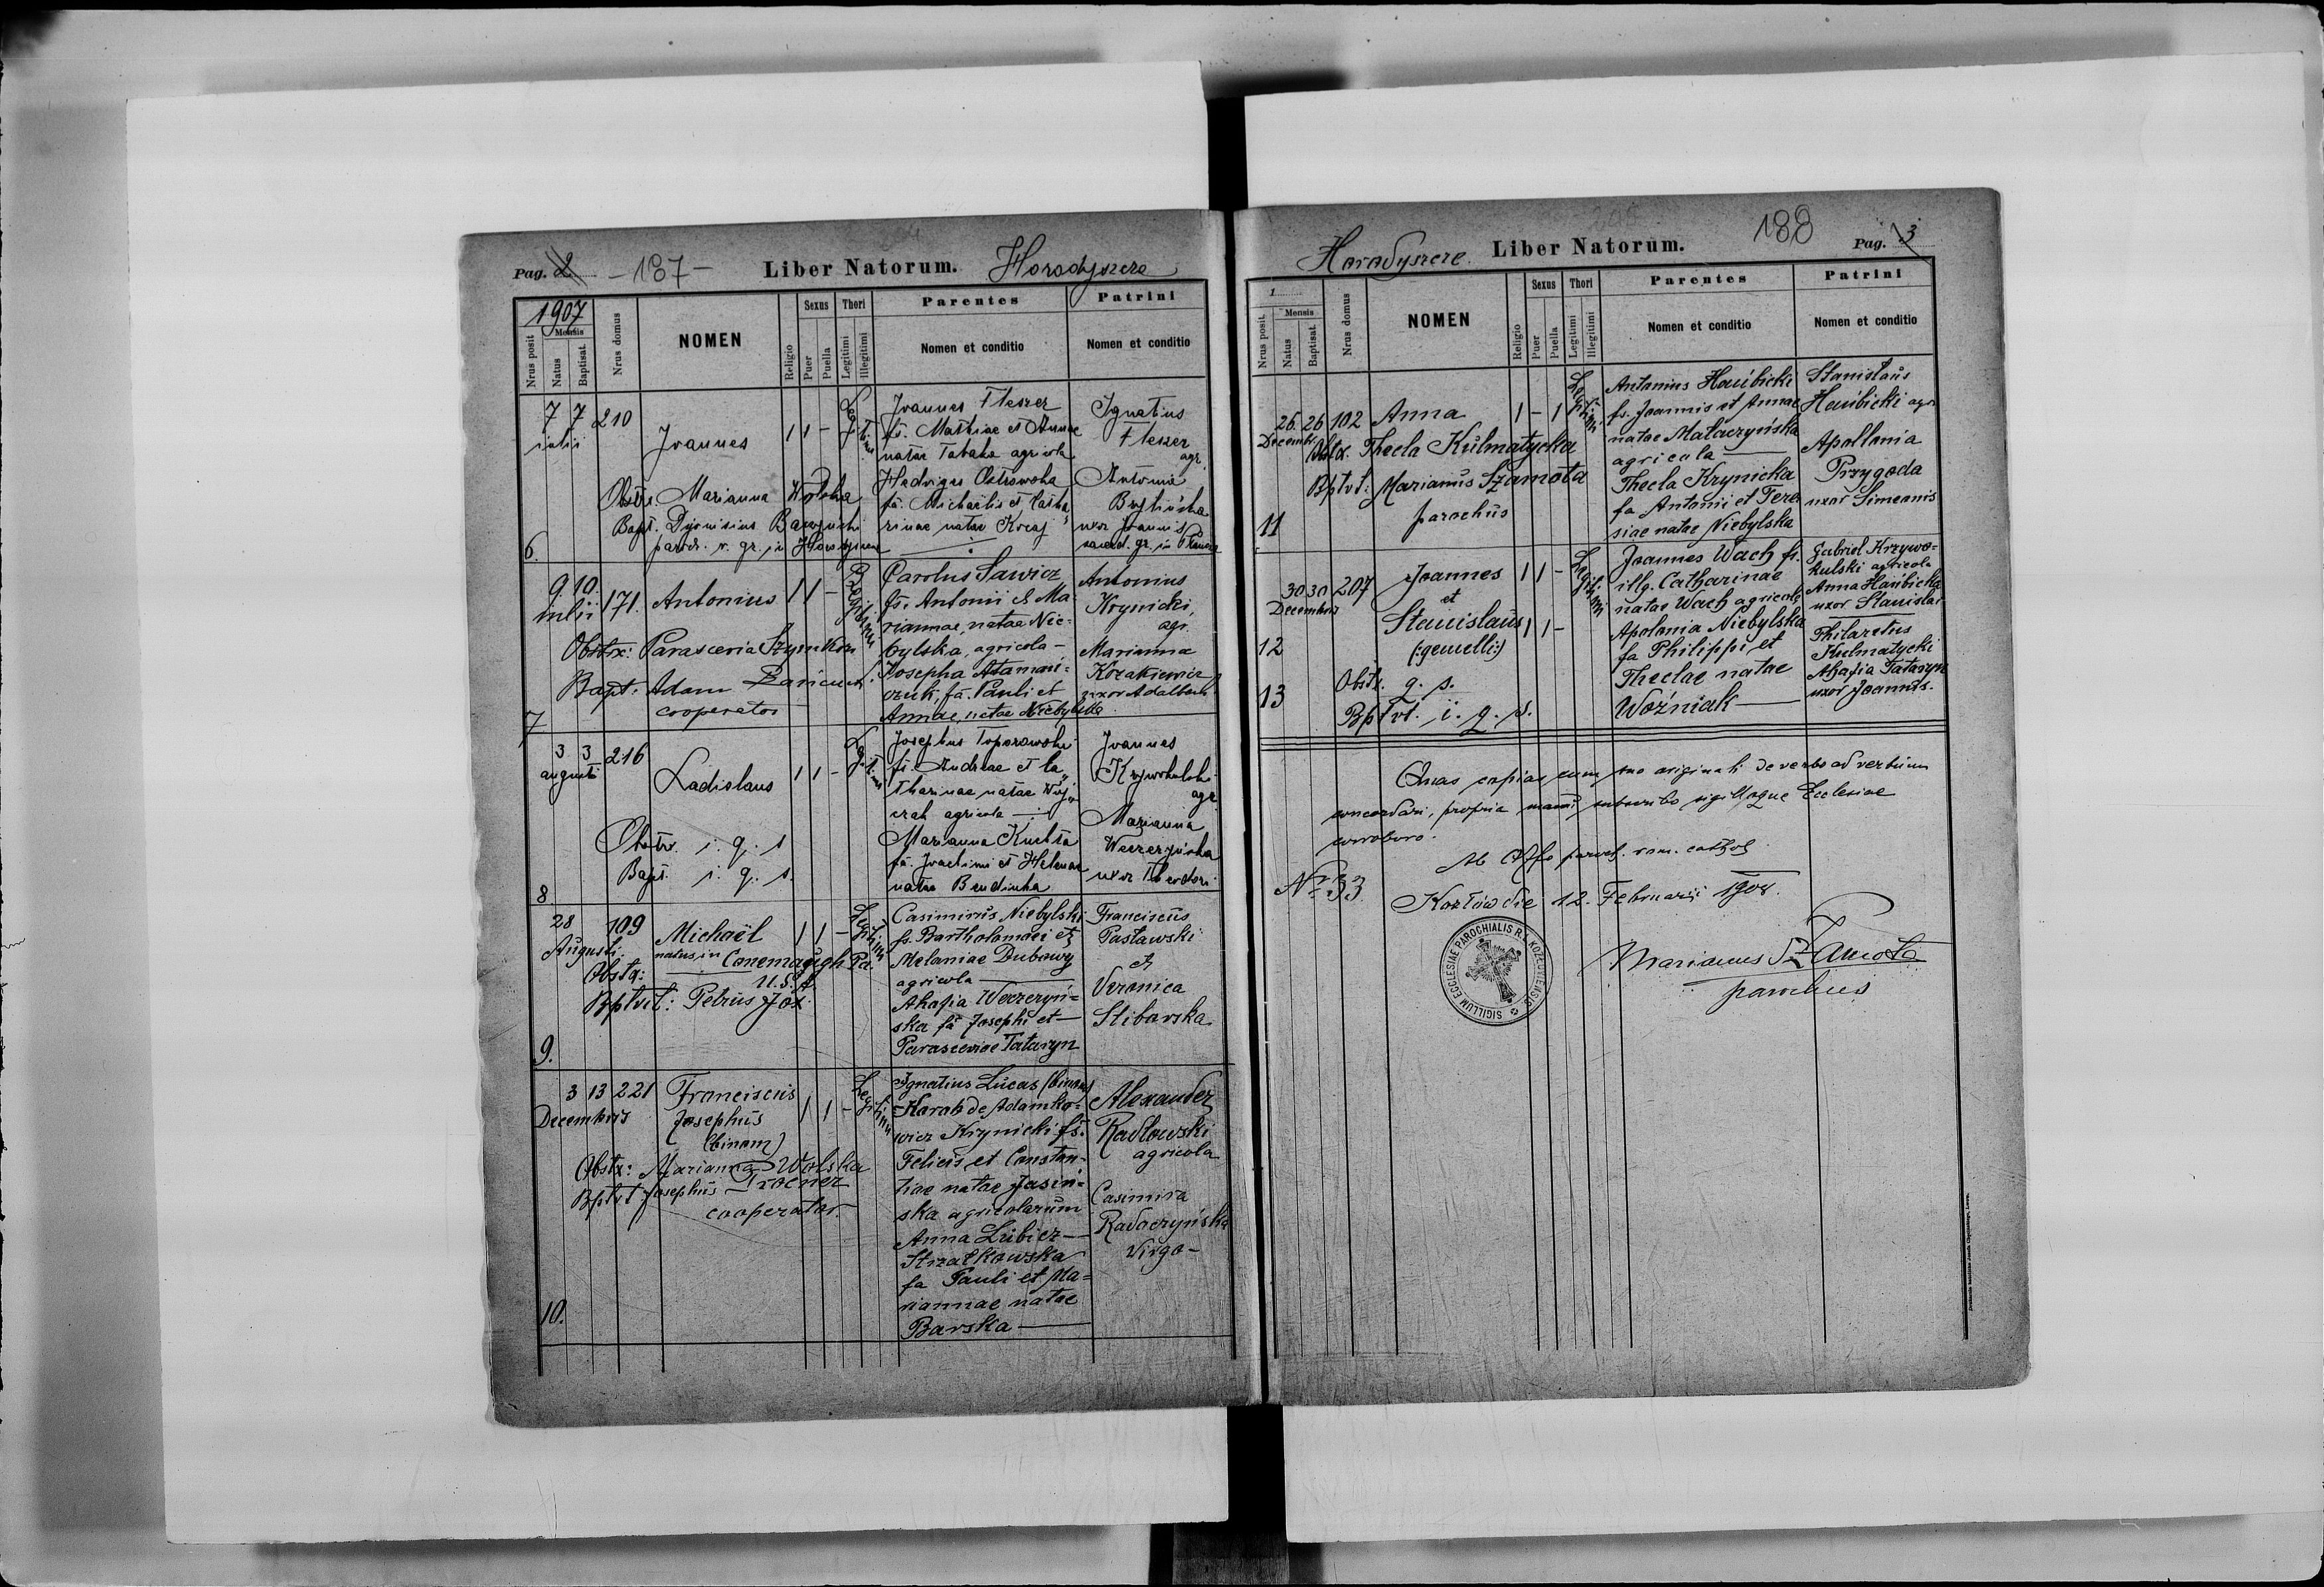 Pag. 2 - 187 - Liber Natorum. Horodyszcze
1907
Nrus posit
Mensis
Natus
Baptisat.
Nrus domus
NOMEN
Religio
Sexus
Puer
Puella
Thori
Legitimi
Illegitimi
Parentes
Nomen et conditio
Patrini
Nomen et conditio
6
7 7 210
iulii
Joannes
1 1 -
Legitimi
Obstr. Marianna Wolska
Bapt. Dyonisius
paroch. r. gr. in Horodyszcze
Joannes Fleszer
fs. Mathiae et Annae
natae Tabaka agricola
Hedvigis Ostrowska
fa. Michaëlis et Catha
rinae natae Kocaj
Ignatius
Fleszer
agr.
Antonia
uxor Joannis
sacerd. gr. in
7
9. 10. 171.
iulii
Antonius
1 1 -
Legitimi
Obstrx: Parascevia Szymków
Bapt: Adam
cooperator
Carolus Sawicz
fs. Antonii & Ma
riannae, natae Nie-
bylska, agricola -
Josepha Atamań-
czuk, fa. Pauli et
Annae, natae Niebylska.
Antonius
Krynicki,
agr.
Marianna
Kozakiewicz
uxor Adalberti
8
3 3 216
augusti
Ladislaus
1 1 -
Legitimi
Obstr. i. q. s
Bapt. i. q. s.
Josephus Toporowski
fs. Andreae et Ca
tharinae natae Woj
agricola
Marianna Kuchta
fa. Joachimi et Helenae
natae Bendinka
Joannes
Krzywokulski
agr.
Marianna
Weczerzyńska
uxor Theodori
9.
28 109
Augusti
Michaël
natus in Conemaugh Pa.
U.S.A.
1 1 -
Legitimi
Obstx:
Bptvit: Petrus Jox.
Casimirus Niebylski
fs. Bartholomaei et
Melaniae Dubowy
agricola
Ahafia Weczeryń-
ska fa Josephi et
Parasceviae Tataryn
Franciscus
Pasławski
et
Veronica
Stibarska
10.
3 13 221
Decembris
Franciscus
Josephus
(binom)
1 1 -
Legitimi
Obstx: Marianna Wolska
Bptvt Josephus Procner
cooperator.
Ignatius Lucas (binom)
Korab de Adamko-
wicz Krynicki fs.
Felicis et Constan-
tiae natae Jasiń-
ska agricolarum
Anna Lubicz
Strzałkowska
fa Pauli et Ma-
riannae natae
Barska
Alexander
Radłowski
agricola
Casimira
Radoczyńska
Virgo -
Horodyszcze. Liber Natorum. 188 Pag. 3
1
Nrus posit.
Mensis
Natus
Baptisat.
Nrus domus
NOMEN
Religio
Sexus
Puer
Puella
Thori
Legitimi
Illegitimi
Parentes
Nomen et conditio
Patrini
Nomen et conditio
11
26. 26 102
Decembr.
Anna
1 - 1
Legitimi
Obstx. Thecla Kulmatycka
Bptvt: Marianus Szamota
parochus
Antonius Haŭbicki
fs. Joannis et Annae
natae Mataczyńska
agricola
Thecla Krynicka
fa Antonii et Tere
siae natae Niebylska
Stanislaŭs
Haŭbicki agr.
Apollonia
Przygoda
uxor Simeonis
12
13
30 30 207
Decembris
Joannes
et
Stanislaŭs
(:gemelli:)
1 1 -
1 1 -
Legitimi
Obstx. q. s.
Bptvt. i. q. s.
Joannes Wach fs.
illg. Catharinae
natae Wach agricola
Apolonia Niebylska
fa Philippi et
Theclae natae
Woźniak
Gabriel Krzywo-
kulski agricola
Anna Haŭbicka
uxor Stanislai
Philaretus
Kulmatycki
Ahafia Tataryn
uxor Joannis.
Quas copias cum suo originali de verbo ad verbum
concordari, propria manu subscribo sigilloque Ecclesiae
corroboro.
Ab Offo paroch. rom. cathol.
Nº 33
Kozłów die 12. Februarii 1908.
SIGILLUM ECCLESIAE PAROCHIALIS R. L. KOZŁOVIENSIS
Marianus Szamota
parochus